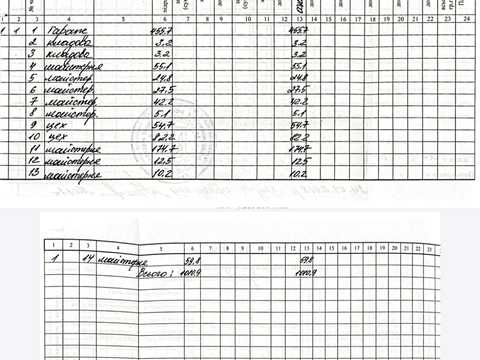 1 2 3 4 5 6 7 8 9 10 11 12 13 14 15 16 17 18 19 20 21 22 23 24
1 1 1 Гараж 455.7 455.7
2 кладова 3.2 3.2
3 кладова 3.2 3.2
4 майстерня 55.1 55.1
5 майстер. 24.8 24.8
6 майстер. 27.5 27.5
7 майстер. 42.2 42.2
8 майстер. 5.1 5.1
9 цех 54.7 54.7
10 цех 82.2 82.2
11 майстерня 174.7 174.7
12 майстерня 12.5 12.5
13 майстерня 10.2 10.2
1 2 3 4 5 6 7 8 9 10 11 12 13 14 15 16 17 18 19 20 21 22 23
1 14 майстерня 59.8 59.8
Всього: 1010.9 1010.9